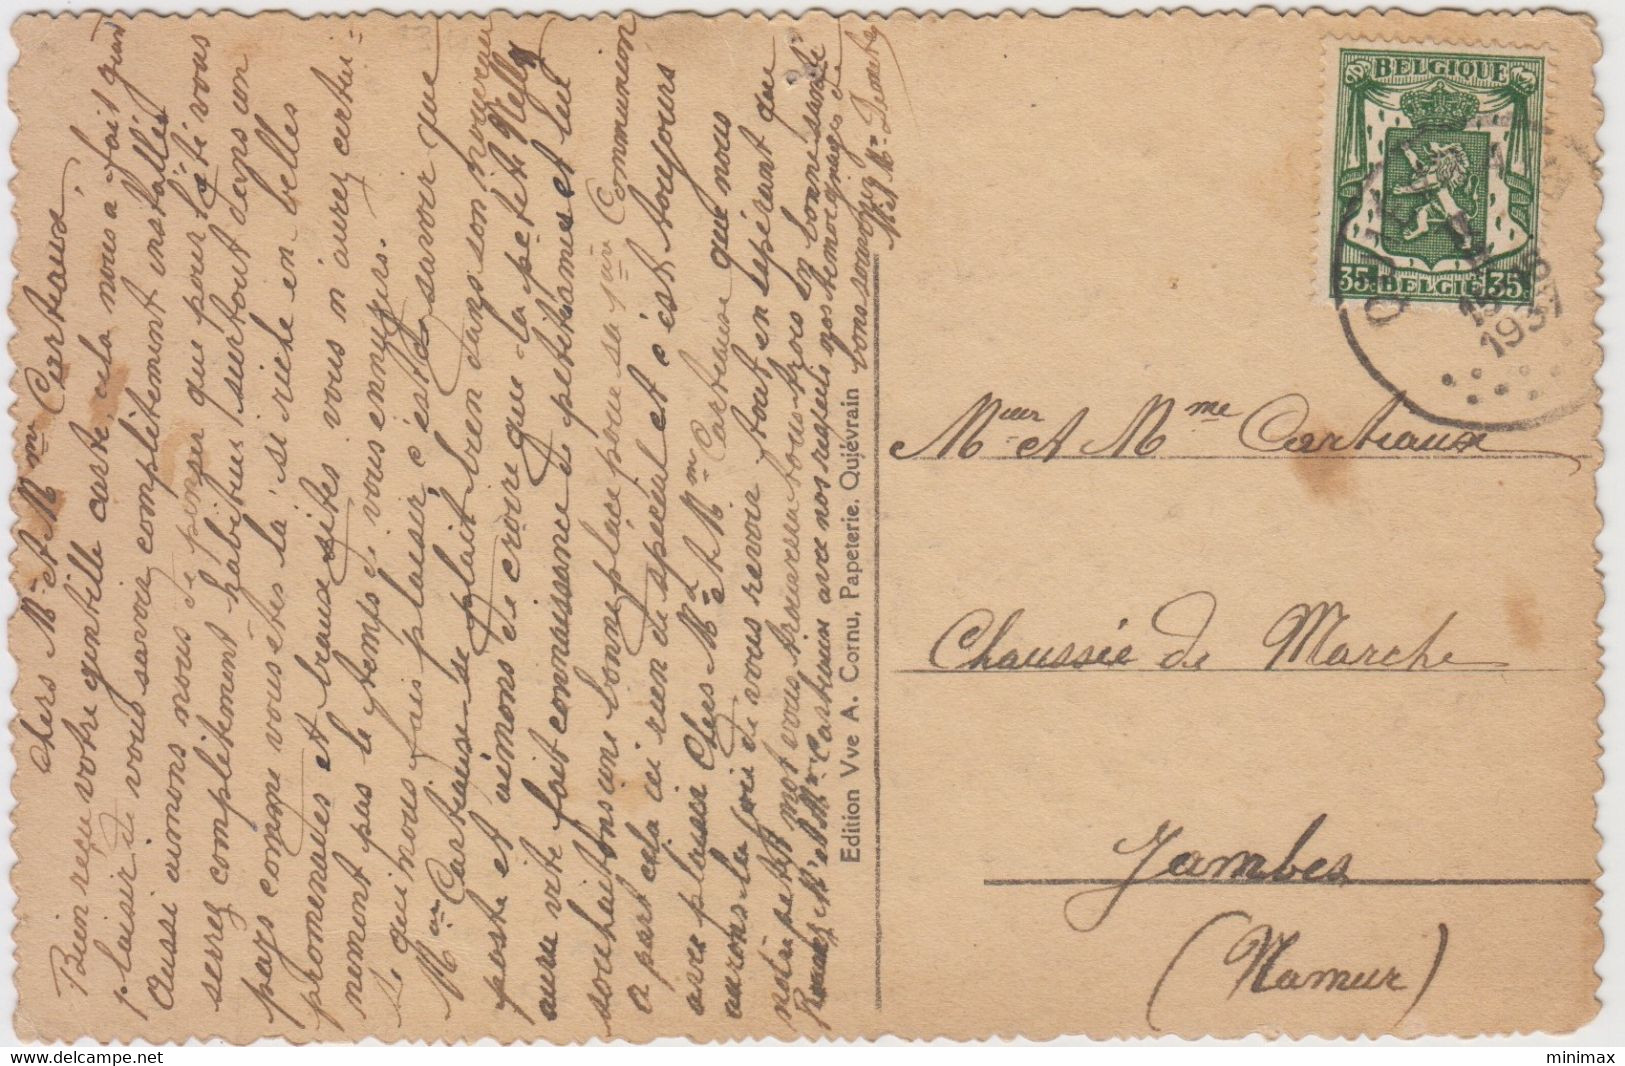 Chers Mr et Mme Carteaux,
Bien reçu votre gentille carte, cela nous a fait grand
plaisir de vous savoir complètement installés
Aussi aimons nous de penser que pour l'été vous
serrez complètement habitués, surtout dans un
pays comme vous êtes là si riche en belles
promenades et beaux sites vous n'aurez certai=
nement pas le temps de vous ennuyer.
Ce qui nous fais plaisir, c'est de savoir que
Mr Carteaux se plait bien dans son nouveau
poste et aimons de croire que la petite Nelly
aura vite fait connaissance de petites amies et lui
souhaitons une bonne place pour sa 1ère Communion
A part cela ici rien de spécial et c'est toujours
avec plaisir Chers Mr et Mme Carteaux que nous
aurons la joie de vous revoir tout en espérant que
notre petit mot vous trouvera tous trois en bonne santé
Recevez Mr et Mme Carteaux avec nos respects nos témoignages de
bons souvenirs
Mr Mme
Edition Vve A. Cornu, Papeterie, Quiévrain
BELGIQUE
35c BELGIE 35c
QUIEVRAIN
1937
Mieur et Mme Carteaux
Chaussée de Marche
Jambes
(Namur)
delcampe.net
minimax